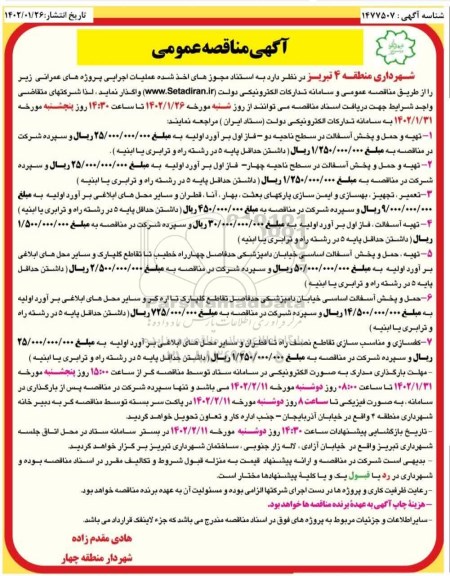 شناسه آگهی : ۱۴۷۷۵۰۷
تاریخ انتشار: ۱۴۰۲/۰۱/۲۶
آگهی مناقصه عمومی
شهرداری منطقه ۴ تبریز در نظر دارد به استناد مجوز های اخذ شده عملیات اجرایی پروژه های عمرانی زیر
را از طریق مناقصه عمومی و سامانه تدارکات الکترونیکی دولت (www.Setadiran.ir) واگذار نماید . لذا شرکتهای متقاضی
واجد شرایط جهت دریافت اسناد مناقصه می توانند از روز شنبه مورخه ۱۴۰۲/۱/۲۶ تا ساعت ۱۴:۳۰ روز پنجشنبه مورخه
۱۴۰۲/۱/۳۱ به سامانه تدارکات الکترونیکی دولت (ستاد ایران ) مراجعه نمایند:
۱- تهیه و حمل و پخش آسفالت در سطح ناحیه دو - فاز اول بر آورد اولیه به مبلغ ۲۵/۰۰۰/۰۰۰/۰۰۰ ریال و سپرده شرکت
در مناقصه به مبلغ ۱/۲۵۰/۰۰۰/۰۰۰ ریال ( داشتن حداقل پایه ۵ در رشته راه و ترابری یا ابنیه ) .
۲- تهیه و حمل و پخش آسفالت در سطح ناحیه چهار- فاز اول بر آورد اولیه به مبلغ ۲۵/۰۰۰/۰۰۰/۰۰۰ ریال و سپرده
شرکت در مناقصه به مبلغ ۱/۲۵۰/۰۰۰/۰۰۰ ریال ( داشتن حداقل پایه ۵ در رشته راه و ترابری یا ابنیه )
۳- تعمیر ، تجهیز ، بهسازی و ایمن سازی پارکهای بعثت ، بهار ، آنا ، قطران و سایر محل های ابلاغی بر آورد اولیه به مبلغ
۹/۰۰۰/۰۰۰/۰۰۰ ریال و سپرده شرکت در مناقصه به مبلغ ۴۵۰/۰۰۰/۰۰۰ ریال (داشتن حداقل پایه ۵ در رشته راه و ترابری یا ابنیه )
۴- تهیه آسفالت . فاز اول بر آورد اولیه به مبلغ ۳۰/۰۰۰/۰۰۰/۰۰۰ ریال و سپرده شرکت در مناقصه به مبلغ ۱/۵۰۰/۰۰۰/۰۰۰
ریال ( داشتن حداقل پایه ۵ در رشته راه و ترابری یا ابنیه )
۵- تهیه ، حمل و پخش آسفالت اساسی خیابان دامپزشکی حدفاصل چهارراه خطیب تا تقاطع کلپارک و سایر محل های ابلاغی
بر آورد اولیه به مبلغ ۵۰/۰۰۰/۰۰۰/۰۰۰ ریال و سپرده شرکت در مناقصه به مبلغ ۲/۵۰۰/۰۰۰/۰۰۰ ریال ( داشتن حداقل پایه
۵ در رشته راه و ترابری یا ابنیه )
۶-حمل و پخش آسفالت اساسی خیابان دامپزشکی حدفاصل تقاطع گلپارک تا ره گیر و سایر محل های ابلاغی بر آورد اولیه
به مبلغ ۱۴/۵۰۰/۰۰۰/۰۰۰ ریال و سپرده شرکت در مناقصه به مبلغ ۷۲۵/۰۰۰/۰۰۰ ریال ( داشتن حداقل پایه ۵ در رشته راه و
ترابری یا ابنیه )
۷-کفسازی و مناسب سازی تقاطع نصف راه تا قطران و سایر محل های ابلاغی بر آورد اولیه به مبلغ ۲۵/۰۰۰/۰۰۰/۰۰۰
ریال و سپرده شرکت در مناقصه به مبلغ ۱/۲۵۰/۰۰۰/۰۰۰ ریال (داشتن حداقل پایه ۵ در رشته راه و ترابری یا ابنیه ) .
- مهلت بارگذاری مدارک به صورت الکترونیکی در سامانه ستاد توسط مناقصه گر از ساعت ۱۵:۰۰ روز پنجشنبه مورخه
۱۴۰۲/۱/۳۱ تا ساعت ۰۸:۰۰ روز دوشنبه مورخه ۱۴۰۲/۲/۱۱ می باشد و تنها سپرده شرکت در مناقصه پس از بارگذاری در
سامانه ، به صورت فیزیکی تا ساعت ۸ روز دوشنبه مورخه ۱۴۰۲/۲/۱۱ در پاکت سر بسته توسط مناقصه گر به دبیر خانه
شهرداری منطقه ۴ واقع در خیابان آذربایجان - جنب اداره کار و تعاون تحویل خواهد گردید.
- تاریخ بازگشایی پیشنهادات ساعت ۱۴:۳۰ روز دوشنبه مورخه ۱۴۰۲/۲/۱۱ در بستر سامانه ستاد در محل اتاق جلسه
شهرداری تبریز واقع در خیابان آزادی ، لاله زار جنوبی ، ساختمان شهرداری تبریز برگزار خواهد گردید.
- بدیهی است شرکت در مناقصه و ارائه پیشنهاد قیمت به منزله قبول شروط و تکالیف مقرر در اسناد مناقصه بوده و
شهرداری در رد یا قبول یک و یا کلیه پیشنهادها مختار است.
- رعایت ظرفیت کاری و پروژه ها در دست اجرای شرکتها الزامی بوده و مسئولیت آن به عهده برنده مناقصه خواهد بود.
- هزینه چاپ آگهی به عهده برنده مناقصه ها خواهد بود.
- سایر اطلاعات و جزئیات مربوط به پروژه های فوق در اسناد مناقصه مندرج می باشد که جزء لاینفک قرارداد می باشد.
هادی مقدم زاده
شهردار منطقه چهار